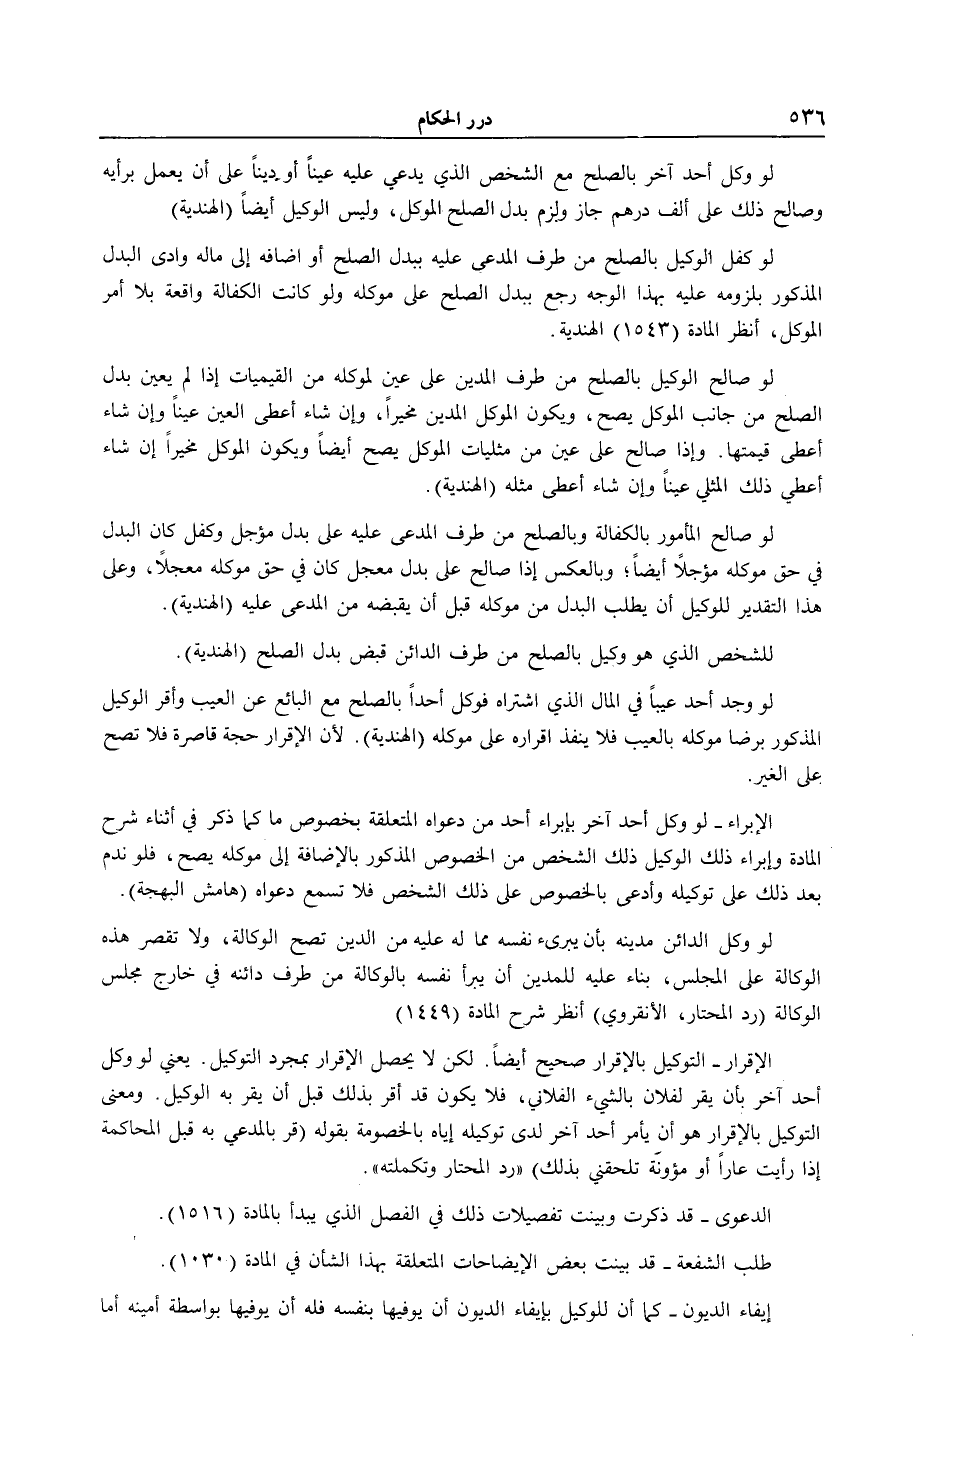 ٥٣٦
درر الحكام
لو وكل أحد آخر بالصلح مع الشخص الذي يدعي عليه عيناً أو ديناً على أن يعمل برأيه
وصالح ذلك على ألف درهم جاز ولزم بدل الصلح الموكل، وليس الوكيل أيضاً (الهندية)
لو كفل الوكيل بالصلح من طرف المدعى عليه ببدل الصلح أو اضافه إلى ماله وادى البدل
المذكور بلزومه عليه بهذا الوجه رجع ببدل الصلح على موكله ولو كانت الكفالة واقعة بلا أمر
الموكل، أنظر المادة (١٥٤٣) الهندية.
لو صالح الوكيل بالصلح من طرف المدين على عين لموكله من القيميات إذا لم يعين بدل
الصلح من جانب الموكل يصح، ويكون الموكل المدين مخيراً، وإن شاء أعطى العين عيناً وإن شاء
أعطى قيمتها. وإذا صالح على عين من مثليات الموكل يصح أيضاً ويكون الموكل مخيراً إن شاء
أعطي ذلك المثلي عيناً وإن شاء أعطى مثله (الهندية).
لو صالح المأمور بالكفالة وبالصلح من طرف المدعى عليه على بدل مؤجل وكفل كان البدل
في حق موكله مؤجلًا أيضاً؛ وبالعكس إذا صالح على بدل معجل كان في حق موكله معجلًا، وعلى
هذا التقدير للوكيل أن يطلب البدل من موكله قبل أن يقبضه من المدعى عليه (الهندية).
للشخص الذي هو وكيل بالصلح من طرف الدائن قبض بدل الصلح (الهندية).
لو وجد أحد عيباً في المال الذي اشتراه فوكل أحداً بالصلح مع البائع عن العيب وأقر الوكيل
المذكور برضا موكله بالعيب فلا ينفذ اقراره على موكله (الهندية). لأن الإقرار حجة قاصرة فلا تصح
على الغير.
الإبراء ـ لو وكل أحد آخر بإبراء أحد من دعواه المتعلقة بخصوص ما كما ذكر في أثناء شرح
المادة وإبراء ذلك الوكيل ذلك الشخص من الخصوص المذكور بالإضافة إلى موكله يصح، فلو ندم
بعد ذلك على توكيله وأدعى بالخصوص على ذلك الشخص فلا تسمع دعواه (هامش البهجة).
لو وكل الدائن مدينه بأن يبرىء نفسه مما له عليه من الدين تصح الوكالة، ولا تقصر هذه
الوكالة على المجلس، بناء عليه للمدين أن يبرأ نفسه بالوكالة من طرف دائنه في خارج مجلس
الوكالة (رد المحتار، الأنقروي) أنظر شرح المادة (١٤٤٩)
الإقرار ـ التوكيل بالإقرار صحيح أيضاً. لكن لا يحصل الإقرار بمجرد التوكيل. يعني لو وكل
أحد آخر بأن يقر لفلان بالشيء الفلاني، فلا يكون قد أقر بذلك قبل أن يقر به الوكيل. ومعنى
التوكيل بالإقرار هو أن يأمر أحد آخر لدى توكيله إياه بالخصومة بقوله (قر بالمدعي به قبل المحاكمة
إذا رأيت عاراً أو مؤونة تلحقني بذلك) «رد المحتار وتكملته».
الدعوى ـ قد ذكرت وبينت تفصيلات ذلك في الفصل الذي يبدأ بالمادة (١٥١٦).
طلب الشفعة ـ قد بينت بعض الإيضاحات المتعلقة بهذا الشأن في المادة (١٠٣٠).
إيفاء الديون ـ كما أن للوكيل بإيفاء الديون أن يوفيها بنفسه فله أن يوفيها بواسطة أمينه أما